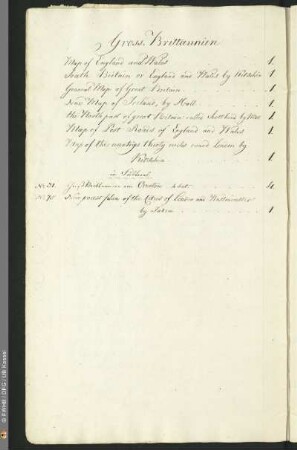 Gross Brittannien
Map of England and Wales 1.
South Britain or England and Wales by Kitchin 1.
General Map of Great Britain 1.
New Map of Ireland, by Hall 1.
the North part of great Britain called Scotland by 1.
Map of Post Roads of England and Wales 1.
Map of the country thirty miles round London by
Kitchin 1
in
No. 31. Gross Brittannien in 4.
No. 90. New pocket plan of the Cities of London and Westminster
by 1
© FWHB | DFG | UB Kassel